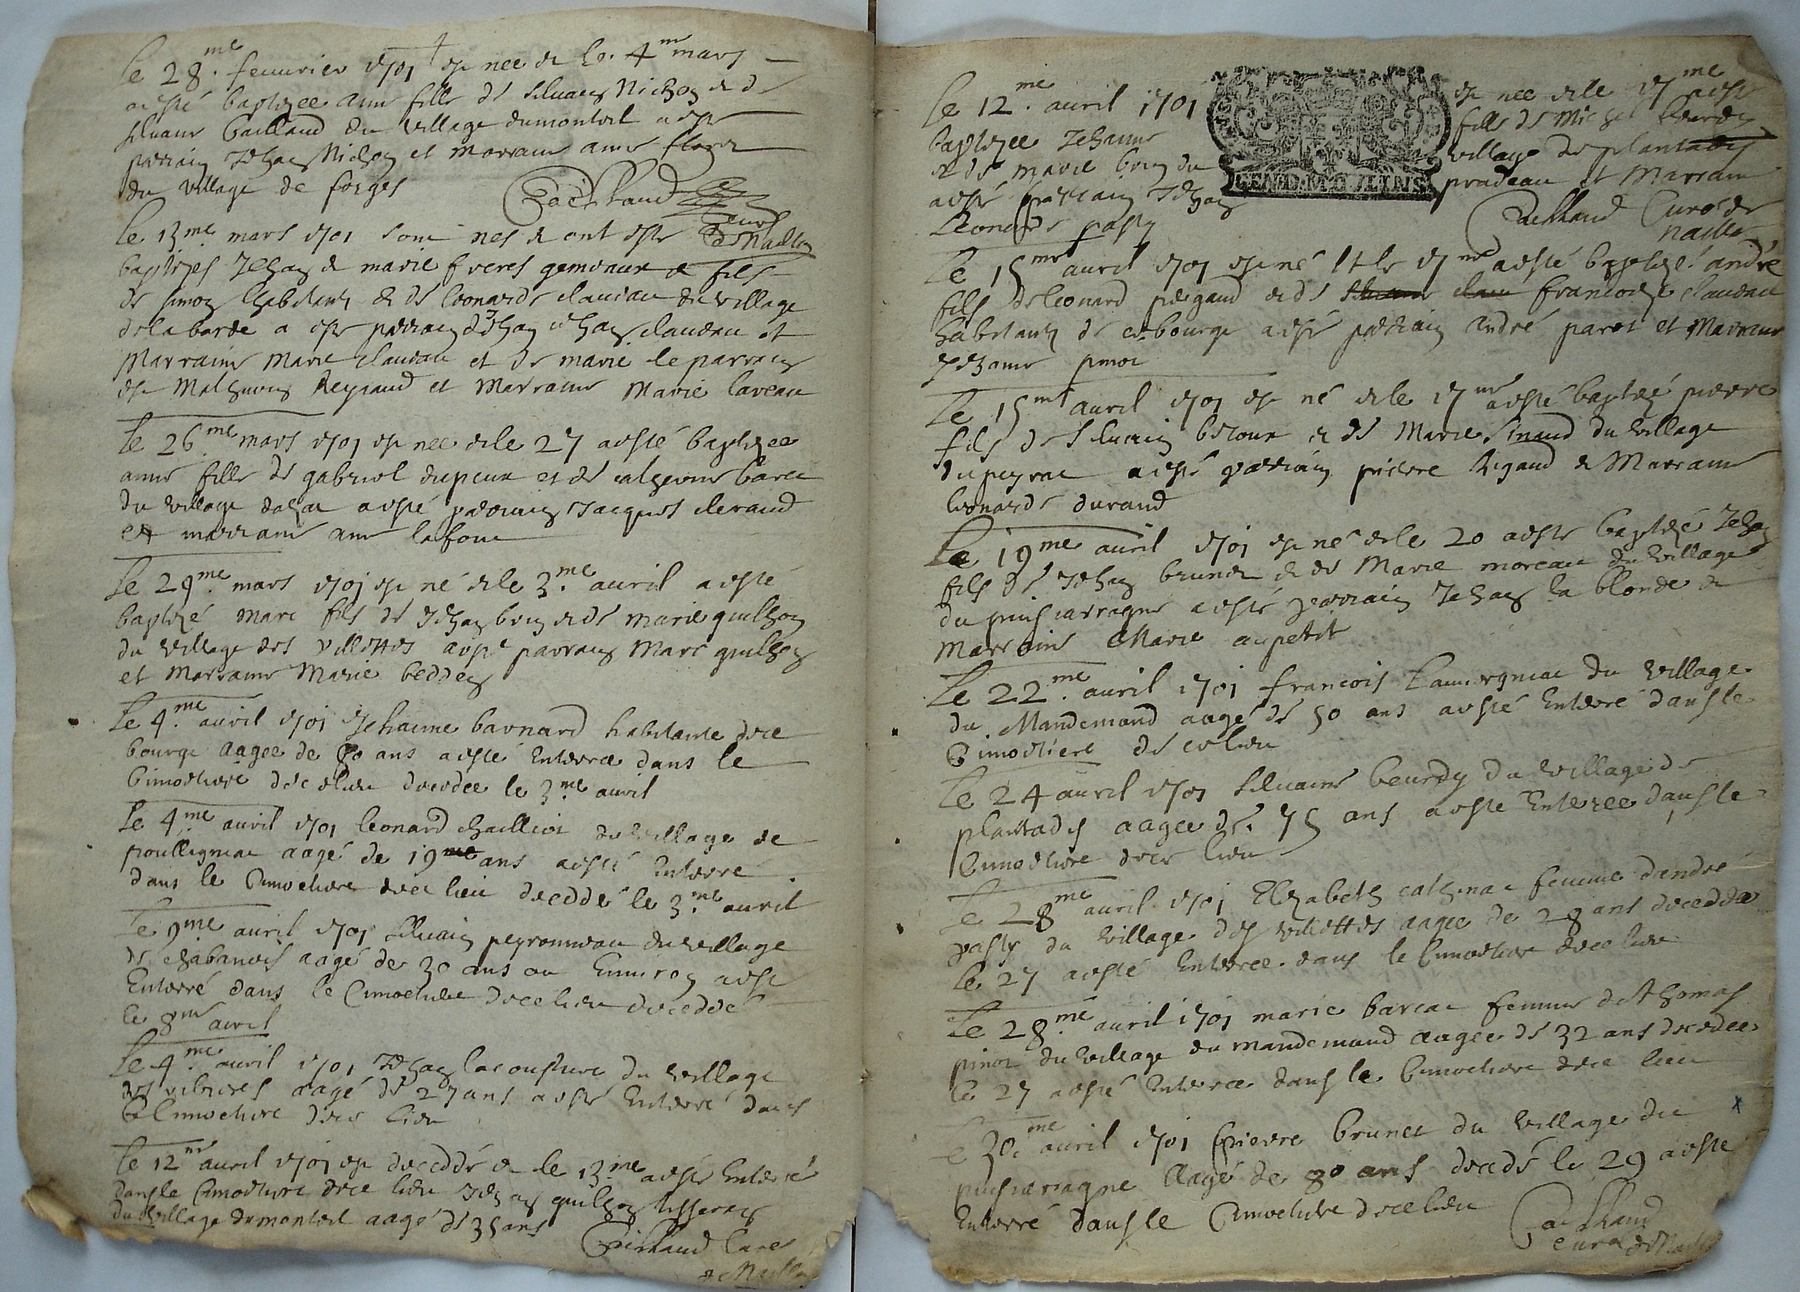 le 28.me feuurier 1701 est nee et le 4me mars
a esté baptizee anne fille de siluain Nichon et de
siluaine Caillaud du village dumonteil a este
parrain Jehan Nichon et marraine anne
du village de forges Caillaud curé de Naillat
Le 13me mars 1701 sont nes et ont este
baptizes Jehan et marie freres gemeaux et fils
de simon et de leonarde claueau du village
delaborde a este parrain de Jehan Jehan claueau et
Marraine Marie claueau et de marie le parrain
est Mathurin Reynaud et Marraine Marie laveau
Le 26.me mars 1701 est nee et le 27 a esté baptizee
anne fille de gabriel dupeux et de catherine
du village a esté parrain Jacques
et marraine anne lafont
Le 29.me mars 1701 est né et le 3.me auril a esté
baptizé marc fils de Jehan et de marie guilhon
du village des villettes a esté parrain Marc guilhon
et Marraine Marie
Le 4.me auril 1701 Jehanne barnard habitante de ce
bourge aagee de ans a esté Enterree dans le
Cimoetiere de ce lieu decedee le 3.me auril
Le 4.me auril 1701 leonard chailliot du village de
poullignac aagé de 19 ans a esté Enterré
dans le Cimoetiere de ce lieu decedé le 3.me auril
Le 9me auril 1701 siluain peyronneau du village
de chabanois aagé de 30 ans ou Enuiron a esté
Enterré dans le Cimoetiere de ce lieu decedé
le 8me auril
Le 4.me auril 1701 Jehan lacousture du village
des aagé de 27 ans a esté Enterré dans
le Cimoetiere de ce lieu
Le 12me auril 1701 est decedé et le 13.me a esté Enterré
dans le Cimoetiere de ce lieu Jehan guilhon tisserand
du village dumonteil aagé de 35 ans
Caillaud Curé
de Naillat
Le 12.me auril 1701 est nee et le 17me a esté
baptizee Jehanne fille de Michel beurdy
et de marie du village de plantadis
a esté parrain Jehan pradeau et Marraine
Leonarde pasty Caillaud Curé de
Naillat
GEN. D. MOVLINS
Le 15me auril 1701 est né et le 17me a esté baptizé andré
fils de leonard pergaud et de francoize claueau
habitants de ce bourge a esté parrain André parot et Marraine
Jehanne pinot
Le 15me auril 1701 est né et le 17me a esté baptizé pierre
fils de siluain et de Marie du village
dupeyrat a esté parrain pierre Rigaud et Marraine
leonarde durand
Le 19me auril 1701 est né et le 20 a este baptizé Jehan
fils de Jehan brunet et de Marie moreau du village
du puiscarragne a esté parrain Jehan la blonde et
Marraine Marie aupetit
Le 22.me auril 1701 francois Lauuergniac du village
du Mandemand aagé de 50 ans a esté Enterré dans le
Cimoetiere de ce lieu
Le 24 auril 1701 siluaine beurdy du village de
plantadis aagee de 75 ans a esté Enterree dans le
Cimoetiere de ce lieu
Le 28me auril 1701 Elizabeth cathinat femme dandré
pasty du village des villettes aagee de 28 ans decedee
le 27 a esté Enterree dans le Cimoetiere de ce lieu
Le 28.me auril 1701 marie barcat femme de thomas
pinot du village du mandemand aagee de 32 ans decedee
le 27 a esté Enterree dans le Cimoetiere de ce lieu
Le 30.me auril 1701 pierre brunet du village du
puiscarragne aagé de 80 ans decedé le 29 a esté
Enterré dans le Cimoetiere de ce lieu Caillaud
curé de Naillat